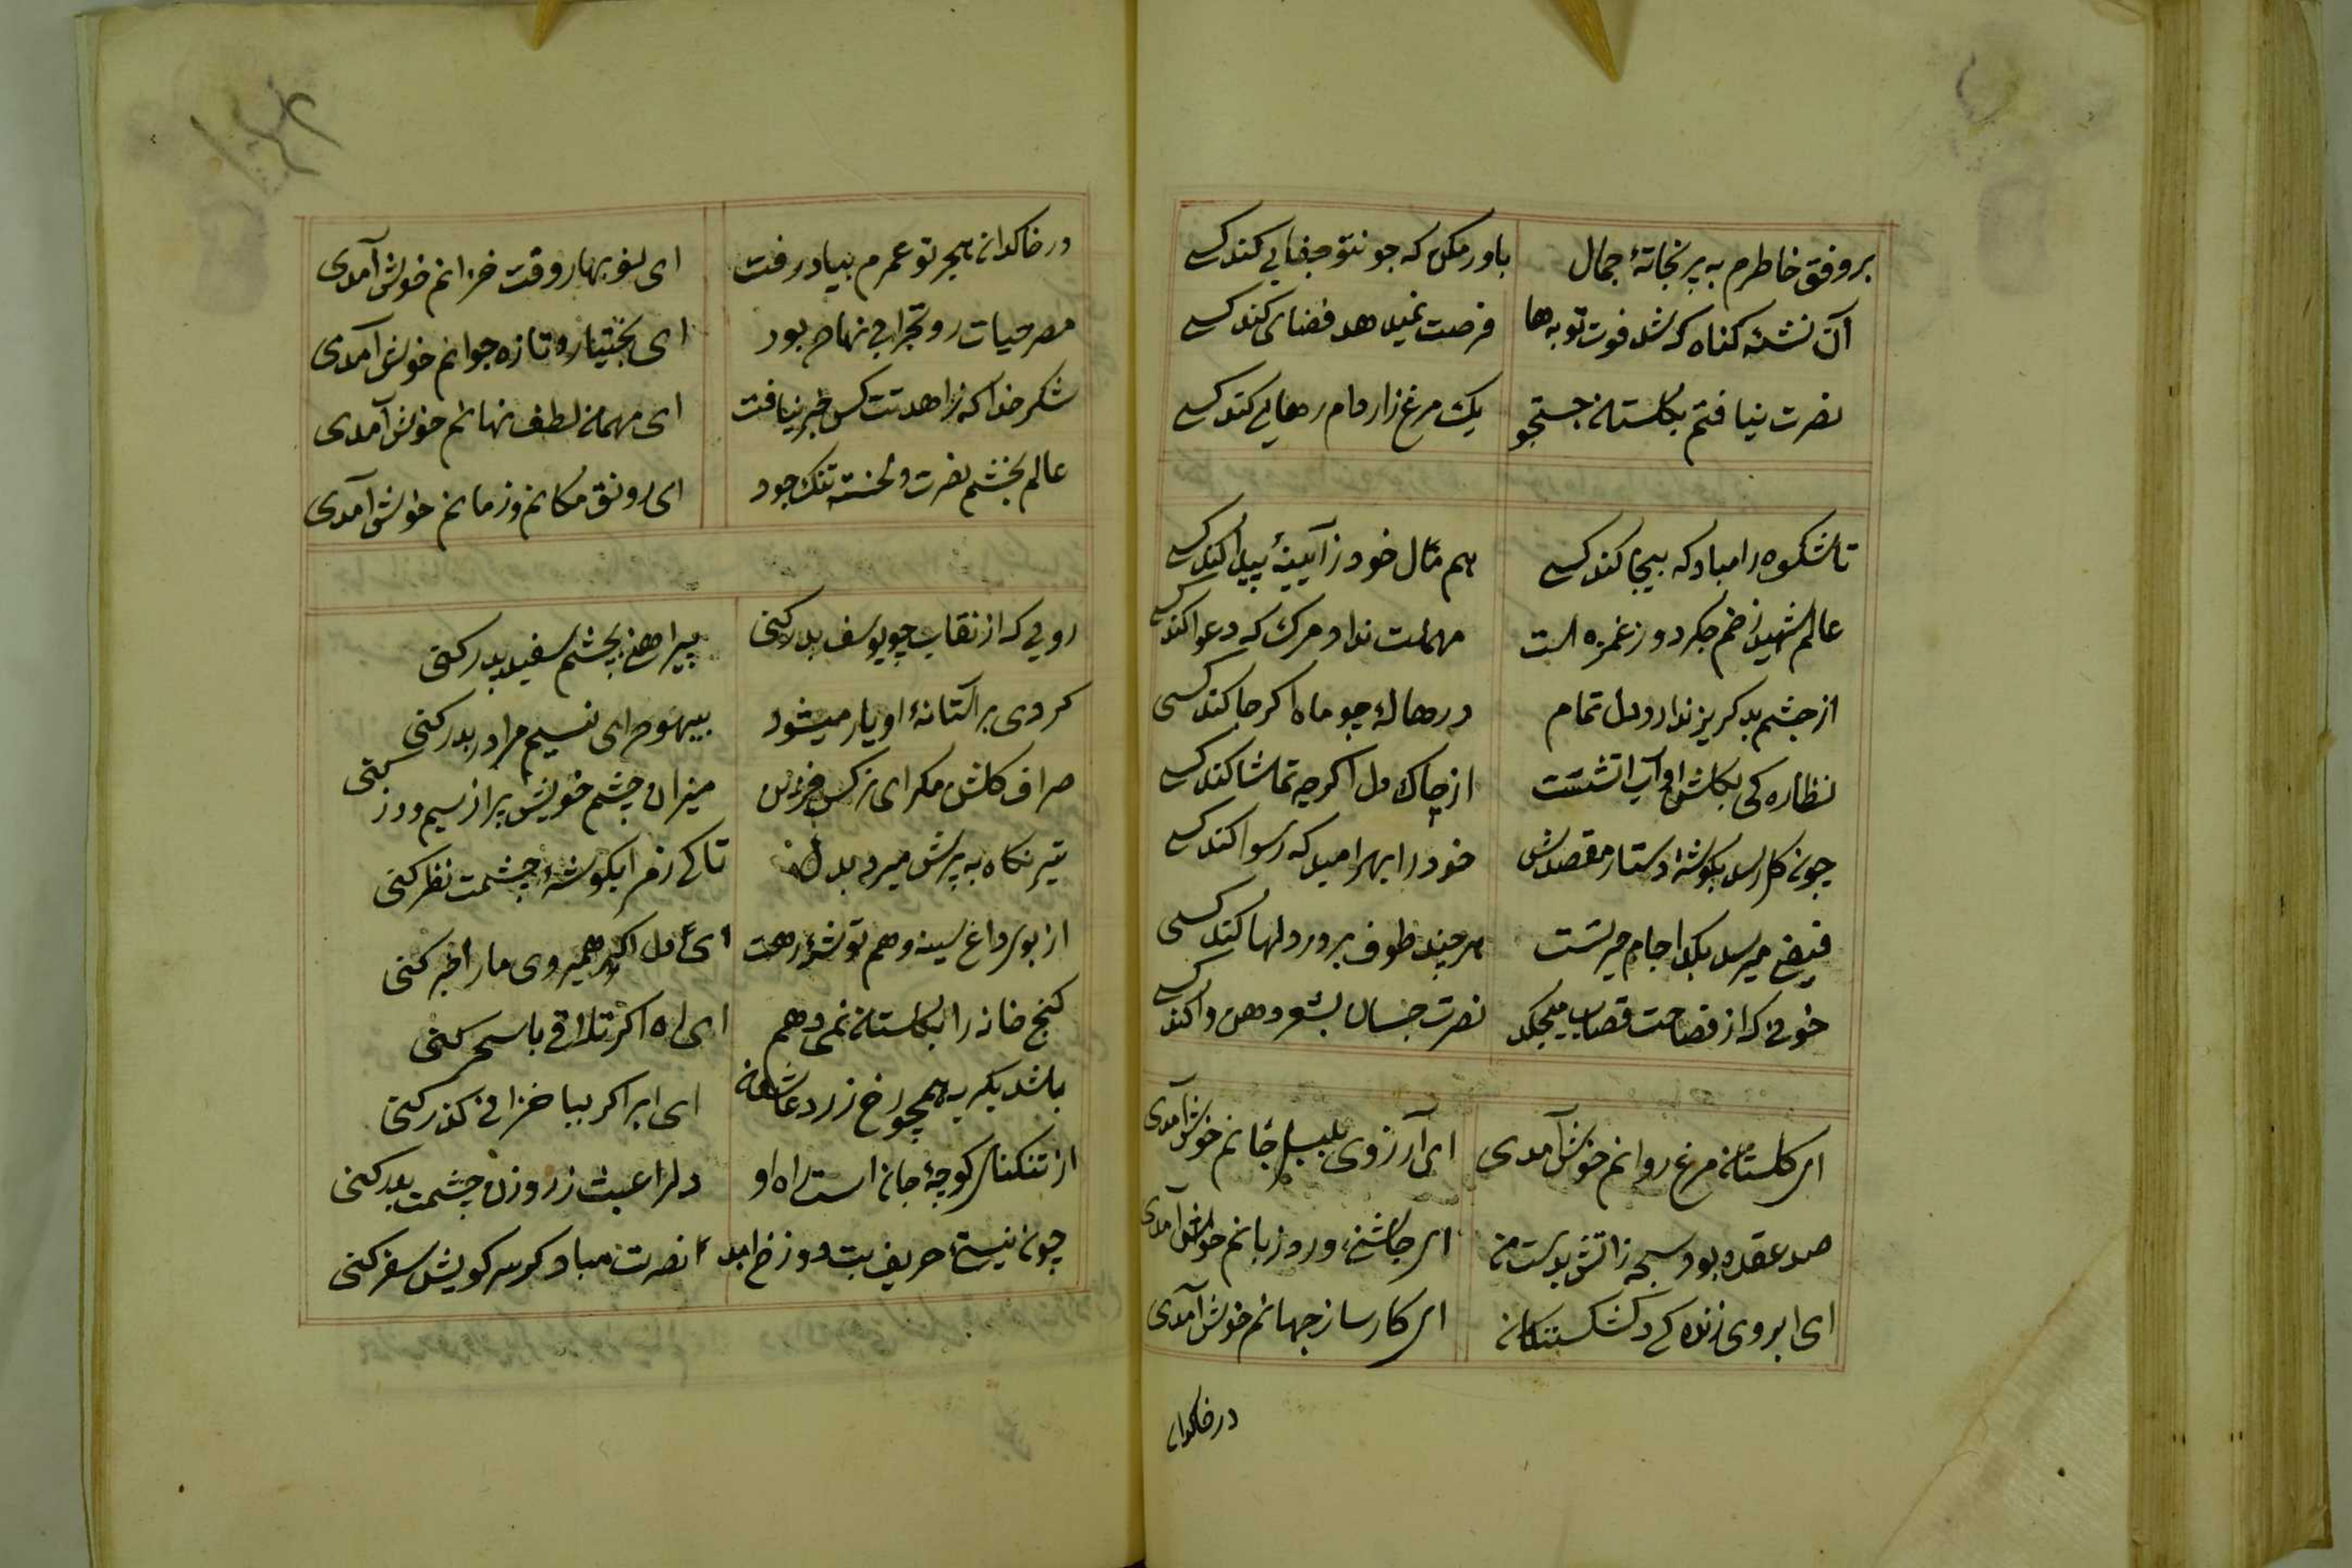 بروفق خاطرم به پریخانهٔ جمال باور مکن که جونتو جفایی کند کسی
آن نشئه کناه که شد فوت توبه ها فرصت نمیدهد قضای کند کسی
نصرت نیافتم بکلستان جستجو یک مرغ زار دام رهایی کند کسی
تا شکوه را مباد که بیجا کند کسی هم مثال خود ز آیینهٔ پیدا کند کسی
عالم شهید زخم جکر دوز غمزه است مهلت نداد مرک که دعوا کند کسی
از جشم بد کریز ندارد دل تمام در هالهٔ چو ماه اکر جا کند کسی
نظاره کی بکلشن او آب آتشست از چاک دل اکرچه تماشا کند کسی
جون کار رسد بکوشهٔ دستار مقصدش خود را بهر امید که رسوا کند کسی
فیض میرسد بکدا جام هر چند طوف برور دلها کند کسی
خونی که از فصاحت قصاب میچکد نصرت جسان بشعر دهن وا کند کسی
ای کلستان مرغ روانم خوش آمدی ای آرزوی بلبل جانم خوش آمدی
صد عقده بود سبحه ز آتش بدست من ای جاشنی ورد زبانم خوش آمدی
ای ابروی زنده کی دلشکستکان ای کارساز جهانم خوش آمدی
در خاکدان
در خاکدان هجر تو عمرم بباد رفت ای نو بهار وقت خزانم خوش آمدی
مصر حیات رو بخرابی نهاده بود ای بختیار و تازه جوانم خوش آمدی
شکر خدا که زاهدت کس خبر نیافت ای مهمان لطف نهانم خوش آمدی
عالم بچشم نصرت دلخسته تنک بود ای رونق مکانم و زمانم خوش آمدی
رویی که از نقاب چو یوسف بدر کنی پیراهن بچشم سفید پدر کنی
کردی بر آستانهٔ او یار میشود بیهوده ای نسیم مرا در بدر کنی
صراف کلشن مکر ای نرکس میزان چشم خویش پر از سیم و زر کنی
تیر نکاه به پرش میرد بدل تا کی ز مرا بکوشهٔ چشمت نظر کنی
از بوی داغ سینه دهم توشهٔ رهت ای دل اکر همیروی ما را خبر کنی
کنج خانه را بکلستان نمی دهم ای آه اکر تلاقی با سحر کنی
باشد بکریه همچو رخ زرد عاشقان ای ابر اکر بباغ خزانی کذر کنی
از تنکنای کوچهٔ جان است راه او دلرا عبث ز روزن چشمت بدر کنی
چون نیستی حریف بت دوزخ نصرت مباد کز سر کویش سفر کنی